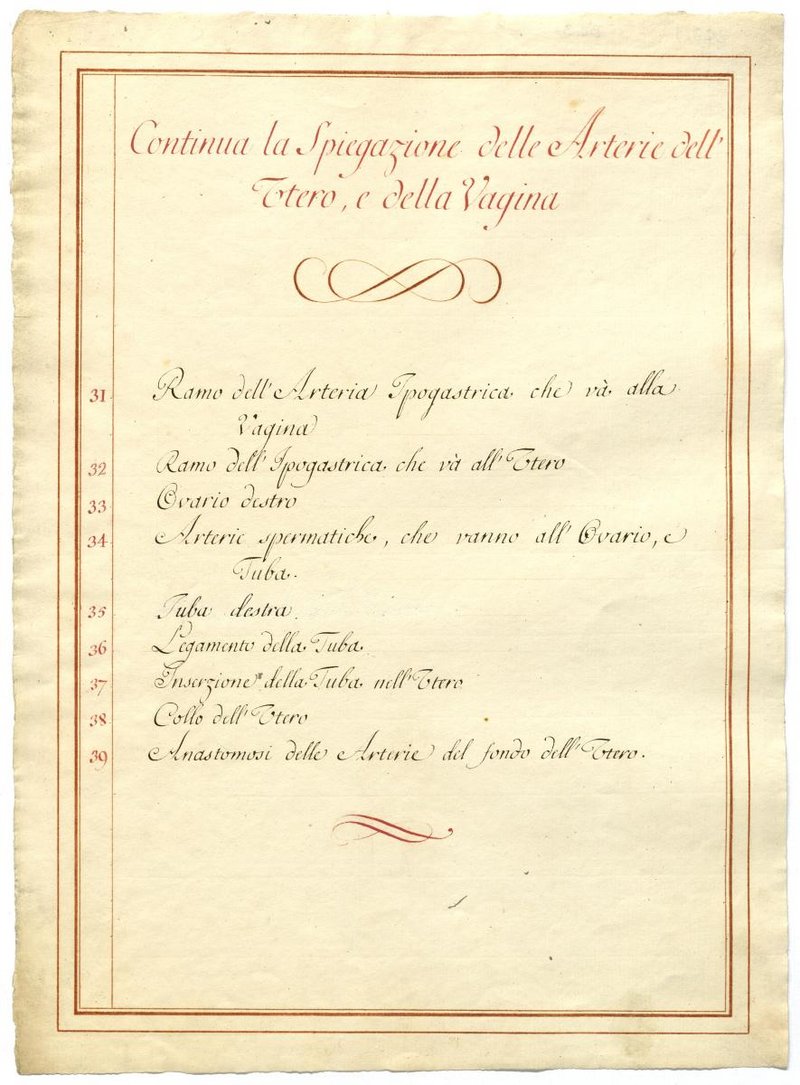 Continua la Spiegazione delle Arterie dell'
Utero, e della Vagina
31 Ramo dell'Arteria Ipogastrica che và alla
Vagina
32 Ramo dell'Ipogastrica che và all'Utero
33 Ovario destro
34 Arterie spermatiche, che vanno all'Ovario, e
Tuba.
35 Tuba destra
36 Legamento della Tuba
37 Inserzione della Tuba nell'Utero
38 Collo dell'Utero
39 Anastomosi delle Arterie del fondo dell'Utero.